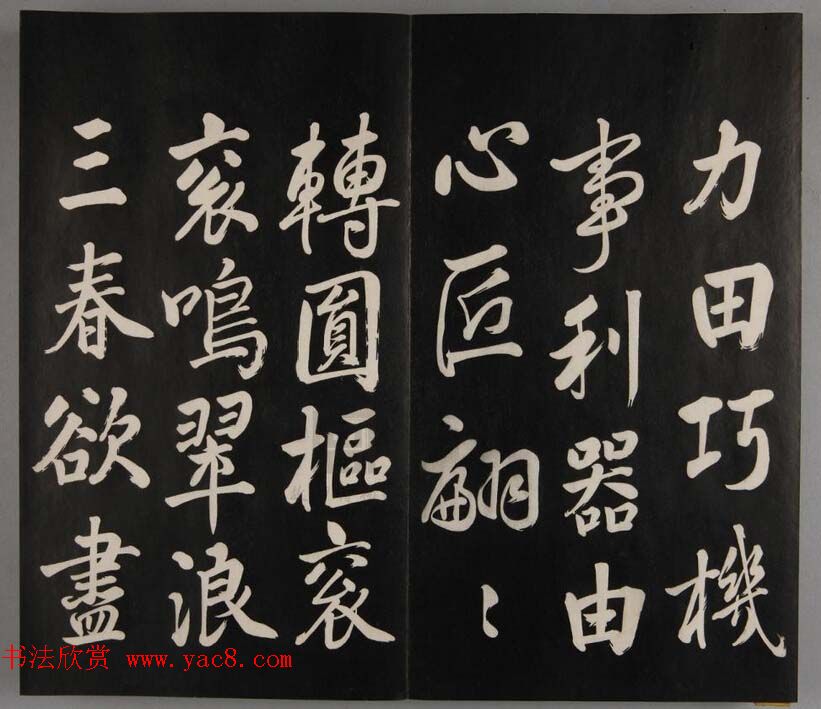 力田巧機
事利器由
心匠翩〻
轉圓樞衮
衮鳴翠浪
三春欲盡
书法欣赏 www.yac8.com